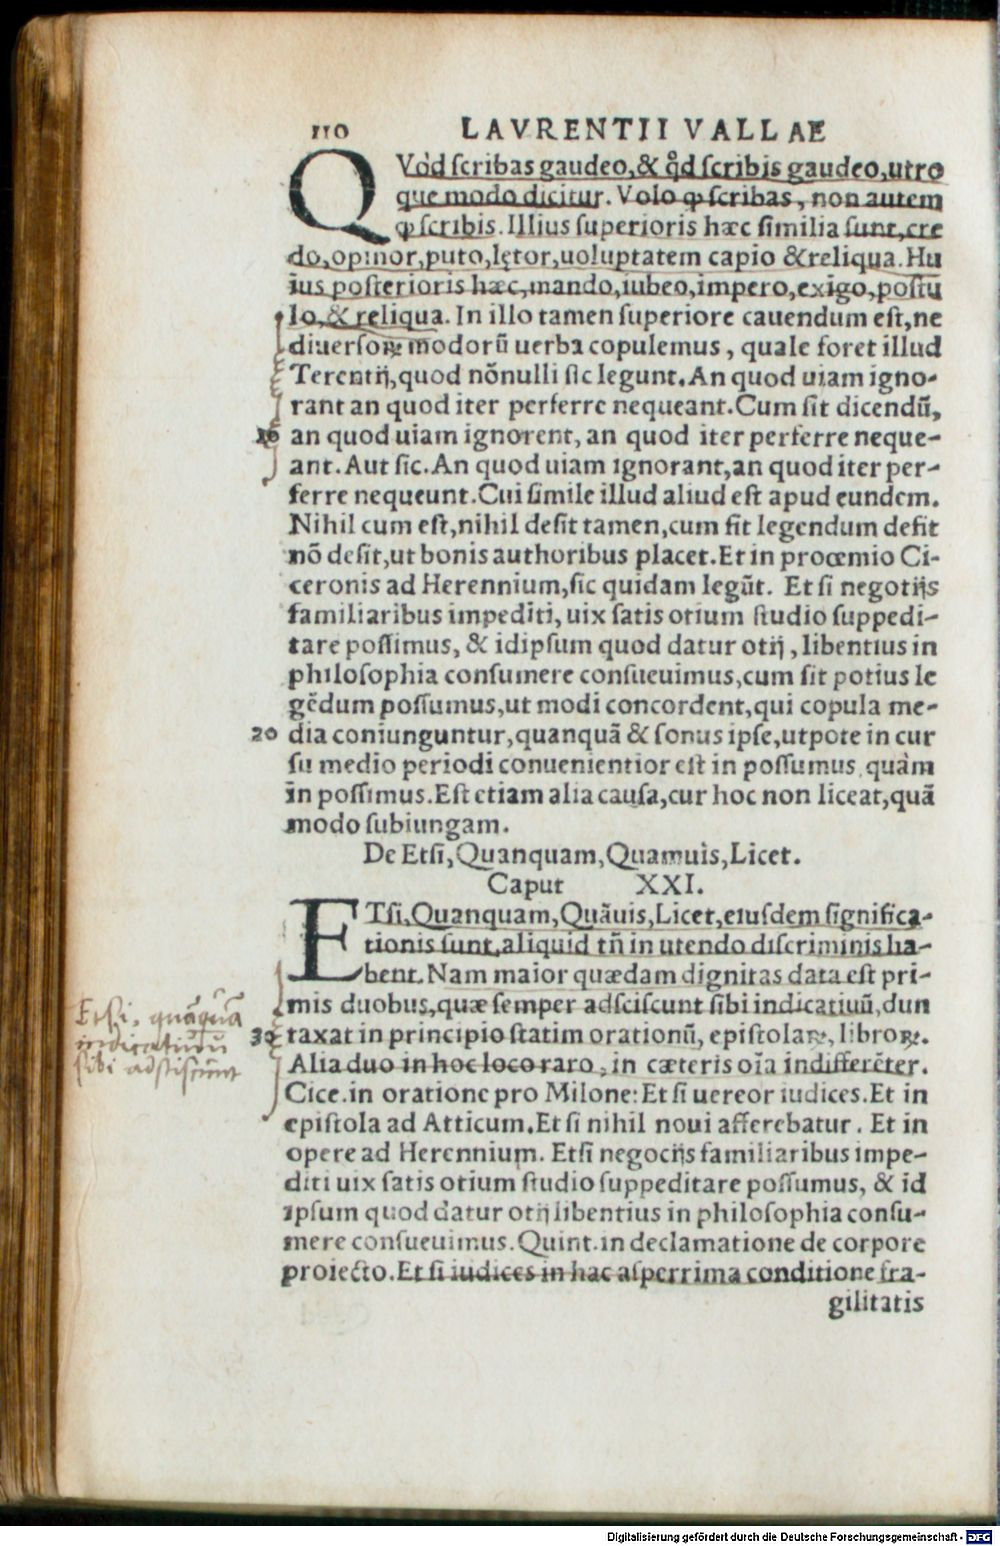 110 LAVRENTII VALLAE
QVòd scribas gaudeo, & q̊d scribis gaudeo, utro
que modo dicitur. Volo ꝙ scribas, non autem
ꝙ scribis. Illius superioris hæc similia sunt, cre
do, opinor, puto, lętor, uoluptatem capio & reliqua. Hu
ius posterioris hæc, mando, iubeo, impero, exigo, postũ
lo, & reliqua. In illo tamen superiore cauendum est, ne
diuersoꝝ modorũ uerba copulemus, quale foret illud
Terentij, quod nõnulli sic legunt. An quod uiam igno-
rant an quod iter perferre nequeant. Cum sit dicendũ,
10 an quod uiam ignorent, an quod iter perferre neque-
ant. Aut sic. An quod uiam ignorant, an quod iter per-
ferre nequeunt. Cui simile illud aliud est apud eundem.
Nihil cum est, nihil desit tamen, cum sit legendum defit
nõ desit, ut bonis authoribus placet. Et in prooemio Ci-
ceronis ad Herennium, sic quidam legũt. Et si negotijs
familiaribus impediti, uix satis otium studio suppedi-
tare possimus, & idipsum quod datur otij, libentius in
philosophia consumere consueuimus, cum sit potius le
gẽdum possumus, ut modi concordent, qui copula me-
20 dia coniunguntur, quanquã & sonus ipse, utpote in cur
su medio periodi conuenientior est in possumus quàm
in possimus. Est etiam alia causa, cur hoc non liceat, quã
modo subiungam.
De Etsi, Quanquam, Quamuis, Licet.
Caput XXI.
ETsi, Quanquam, Quãuis, Licet, eiusdem significa-
tionis sunt, aliquid tñ in utendo discriminis ha-
bent. Nam maior quædam dignitas data est pri-
mis duobus, quæ semper adsciscunt sibi indicatiuũ, dun
30 taxat in principio statim orationũ, epistolaꝝ, libroꝝ.
Alia duo in hoc loco raro, in cæteris oĩa indifferẽter.
Cice. in oratione pro Milone: Et si uereor iudices. Et in
epistola ad Atticum. Et si nihil noui afferebatur. Et in
opere ad Herennium. Etsi negocijs familiaribus impe-
diti uix satis otium studio suppeditare possumus, & id
ipsum quod datur otij libentius in philosophia consu-
mere consueuimus. Quint. in declamatione de corpore
proiecto. Et si iudices in hac asperrima conditione fra-
gilitatis
Etsi, quãquã
indicatiuũ
sibi adsciscunt
Digitalisierung gefördert durch die Deutsche Forschungsgemeinschaft - DFG